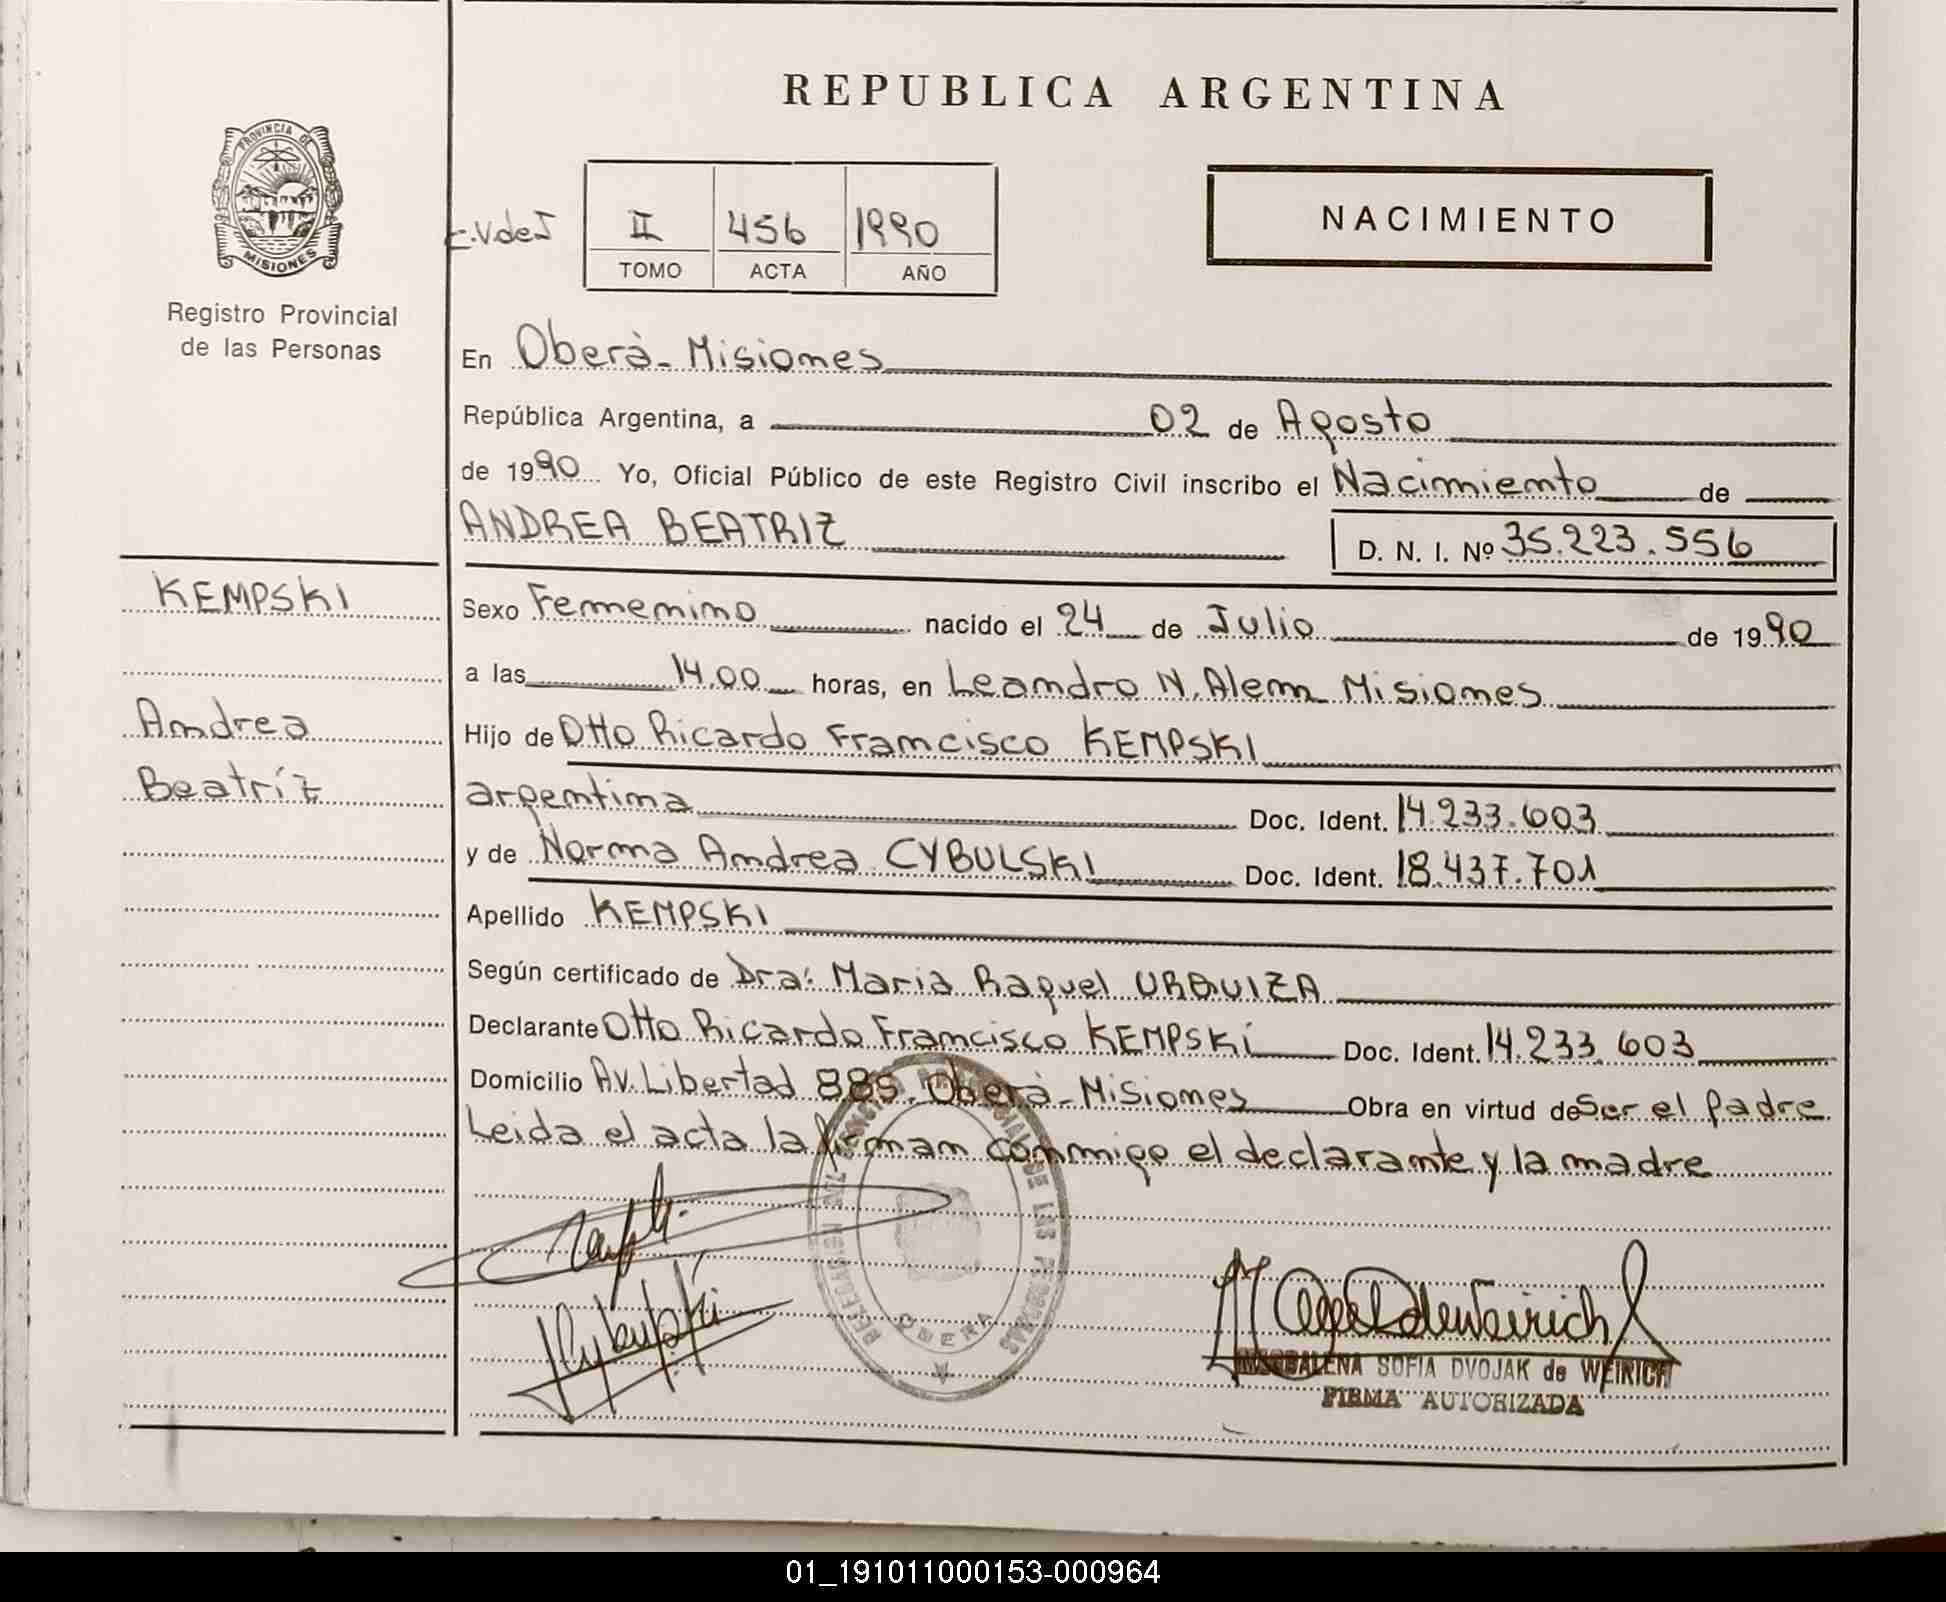 REPUBLICA ARGENTINA
PROVINCIA DE
MISIONES
Registro Provincial
de las Personas
II 456 1990
TOMO ACTA AÑO
NACIMIENTO
En Oberà - Misiones
República Argentina, a 02 de Agosto
de 1990 Yo, Oficial Público de este Registro Civil inscribo el Nacimiento de
ANDREA BEATRIZ
D. N. I. Nº 35.223.556
KEMPSKI
Andrea
Beatríz
Sexo Femenino nacido el 24 de Julio de 1990
a las 14,00 horas, en Leandro N. Alem Misiones
Hijo de Otto Ricardo Francisco KEMPSKI
argentina Doc. Ident. 14.233.603
y de Norma Andrea CYBULSKI Doc. Ident. 18.437.701
Apellido KEMPSKI
Según certificado de Dra: Maria Raquel URQUIZA
Declarante Otto Ricardo Francisco KEMPSKI Doc. Ident. 14.233.603
Domicilio Av. Libertad 885. Oberà - Misiones Obra en virtud de Ser el padre.
Leida el acta la firman conmigo el declarante y la madre
OBERA
MAGDALENA SOFIA DVOJAK de WEIRICH
FIRMA AUTORIZADA
01_191011000153-000964